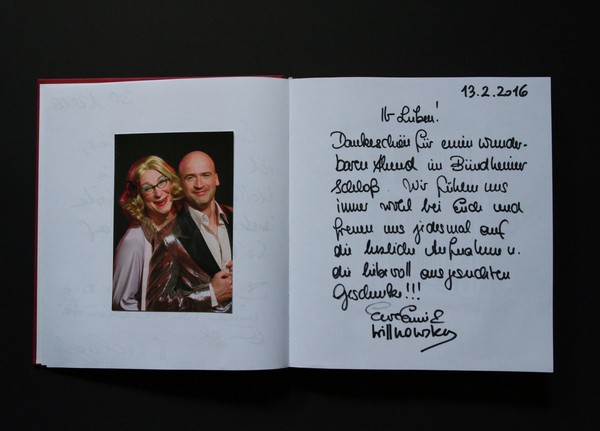 13.2.2016
Ihr Lieben!
Dankeschön für einen wunder-
baren Abend in Bündheimer
Schloß. Wir fühlen uns
immer wohl bei Euch und
freuen uns jedesmal auf
die herzliche Aufnahme u.
die liebevoll ausgesuchten
Geschenke!!!
Eure Emi &
Willnowsky